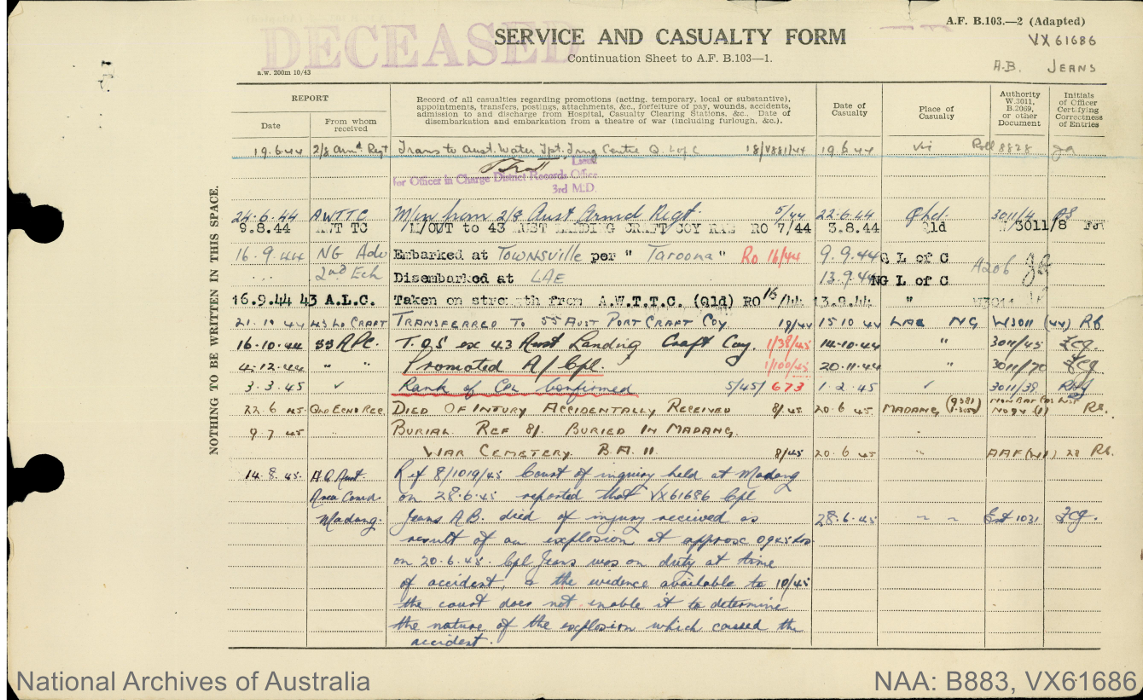 A.F. B.103.—2 (Adapted)
DECEASED
SERVICE AND CASUALTY FORM
VX61686
Continuation Sheet to A.F. B.103—1.
A.B. JEANS
a.w. 200m 10/43
REPORT
Date
From whom received
Record of all casualties regarding promotions (acting, temporary, local or substantive), appointments, transfers, postings, attachments, &c., forfeiture of pay, wounds, accidents, admission to and discharge from Hospital, Casualty Clearing Stations, &c. Date of disembarkation and embarkation from a theatre of war (including furlough, &c.).
Date of Casualty
Place of Casualty
Authority W.3011, B.2069, or other Document
Initials of Officer Certifying Correctness of Entries
NOTHING TO BE WRITTEN IN THIS SPACE.
19.6.44 2/8 Armd Regt Trans to Aust. Water Tpt. Trng Centre Q. L of C 19.6.44 Vic Roll 8828
for Officer in Charge District Records Office
3rd M.D.
24.6.44 AWTTC M/in from 2/8 Aust Armd Regt. 5/44 22.6.44 Qld. 3011/4
9.8.44 AWT TC M/OUT to 43 AUST LANDING CRAFT COY RAE RO 7/44 3.8.44 Qld 3011/8
16.9.44 NG Adv Embarked at TOWNSVILLE per "Taroona" Ro 16/44 9.9.44 G L of C A206
2nd Ech Disembarked at LAE 13.9.44 NG L of C
16.9.44 43 A.L.C. Taken on strength from A.W.T.T.C. (Qld) RO 16/44 13.9.44 "
21.10.44 43 Ld CRAFT TRANSFERRED TO 55 AUST PORT CRAFT COY. 18/44 15 10 44 LAE NG W3011 (44) Rb.
16.10.44 55 APC. T.O.S ex 43 Aust Landing Craft Coy. 1/38/45 14.10.44 " 3011/45
4.12.44 " " Promoted A/Cpl. 1/100/45 20.11.44 " 3011/70
3.3.45 ✓ Rank of Cpl Confirmed 5/45/ 673 1.2.45 ✓ 3011/39
22.6.45 2nd Ech Rec DIED OF INJURY ACCIDENTALLY RECEIVED 8/45 20.6.45 MADANG Rb.
9.7.45 BURIAL REF 8/. BURIED IN MADANG
WAR CEMETERY. B.A. 11. 8/45 20.6.45 AAF (41) 28 Rb.
14.8.45 H.Q Aust. Ref 8/1019/45 Court of inquiry held at Madang
Area Comd on 28.6.45 reported that VX61686 Cpl
Madang. Jeans A.B. died of injury received as 28.6.45 " " Est 1031
result of an explosion at approx 0945 hrs
on 20.6.45. Cpl Jeans was on duty at time
of accident, & the evidence available to 10/45
the court does not enable it to determine
the nature of the explosion which caused the
accident.
National Archives of Australia
NAA: B883, VX61686